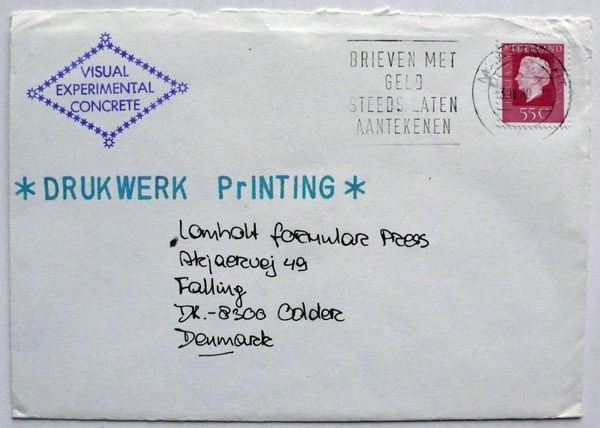 VISUAL
EXPERIMENTAL
CONCRETE
BRIEVEN MET
GELD
STEEDS LATEN
AANTEKENEN
NEDERLAND
55c
*DRUKWERK PrINTING*
Lomholt formular Press
Akjaervej 49
Falling
DK.-8300 Odder
Denmark